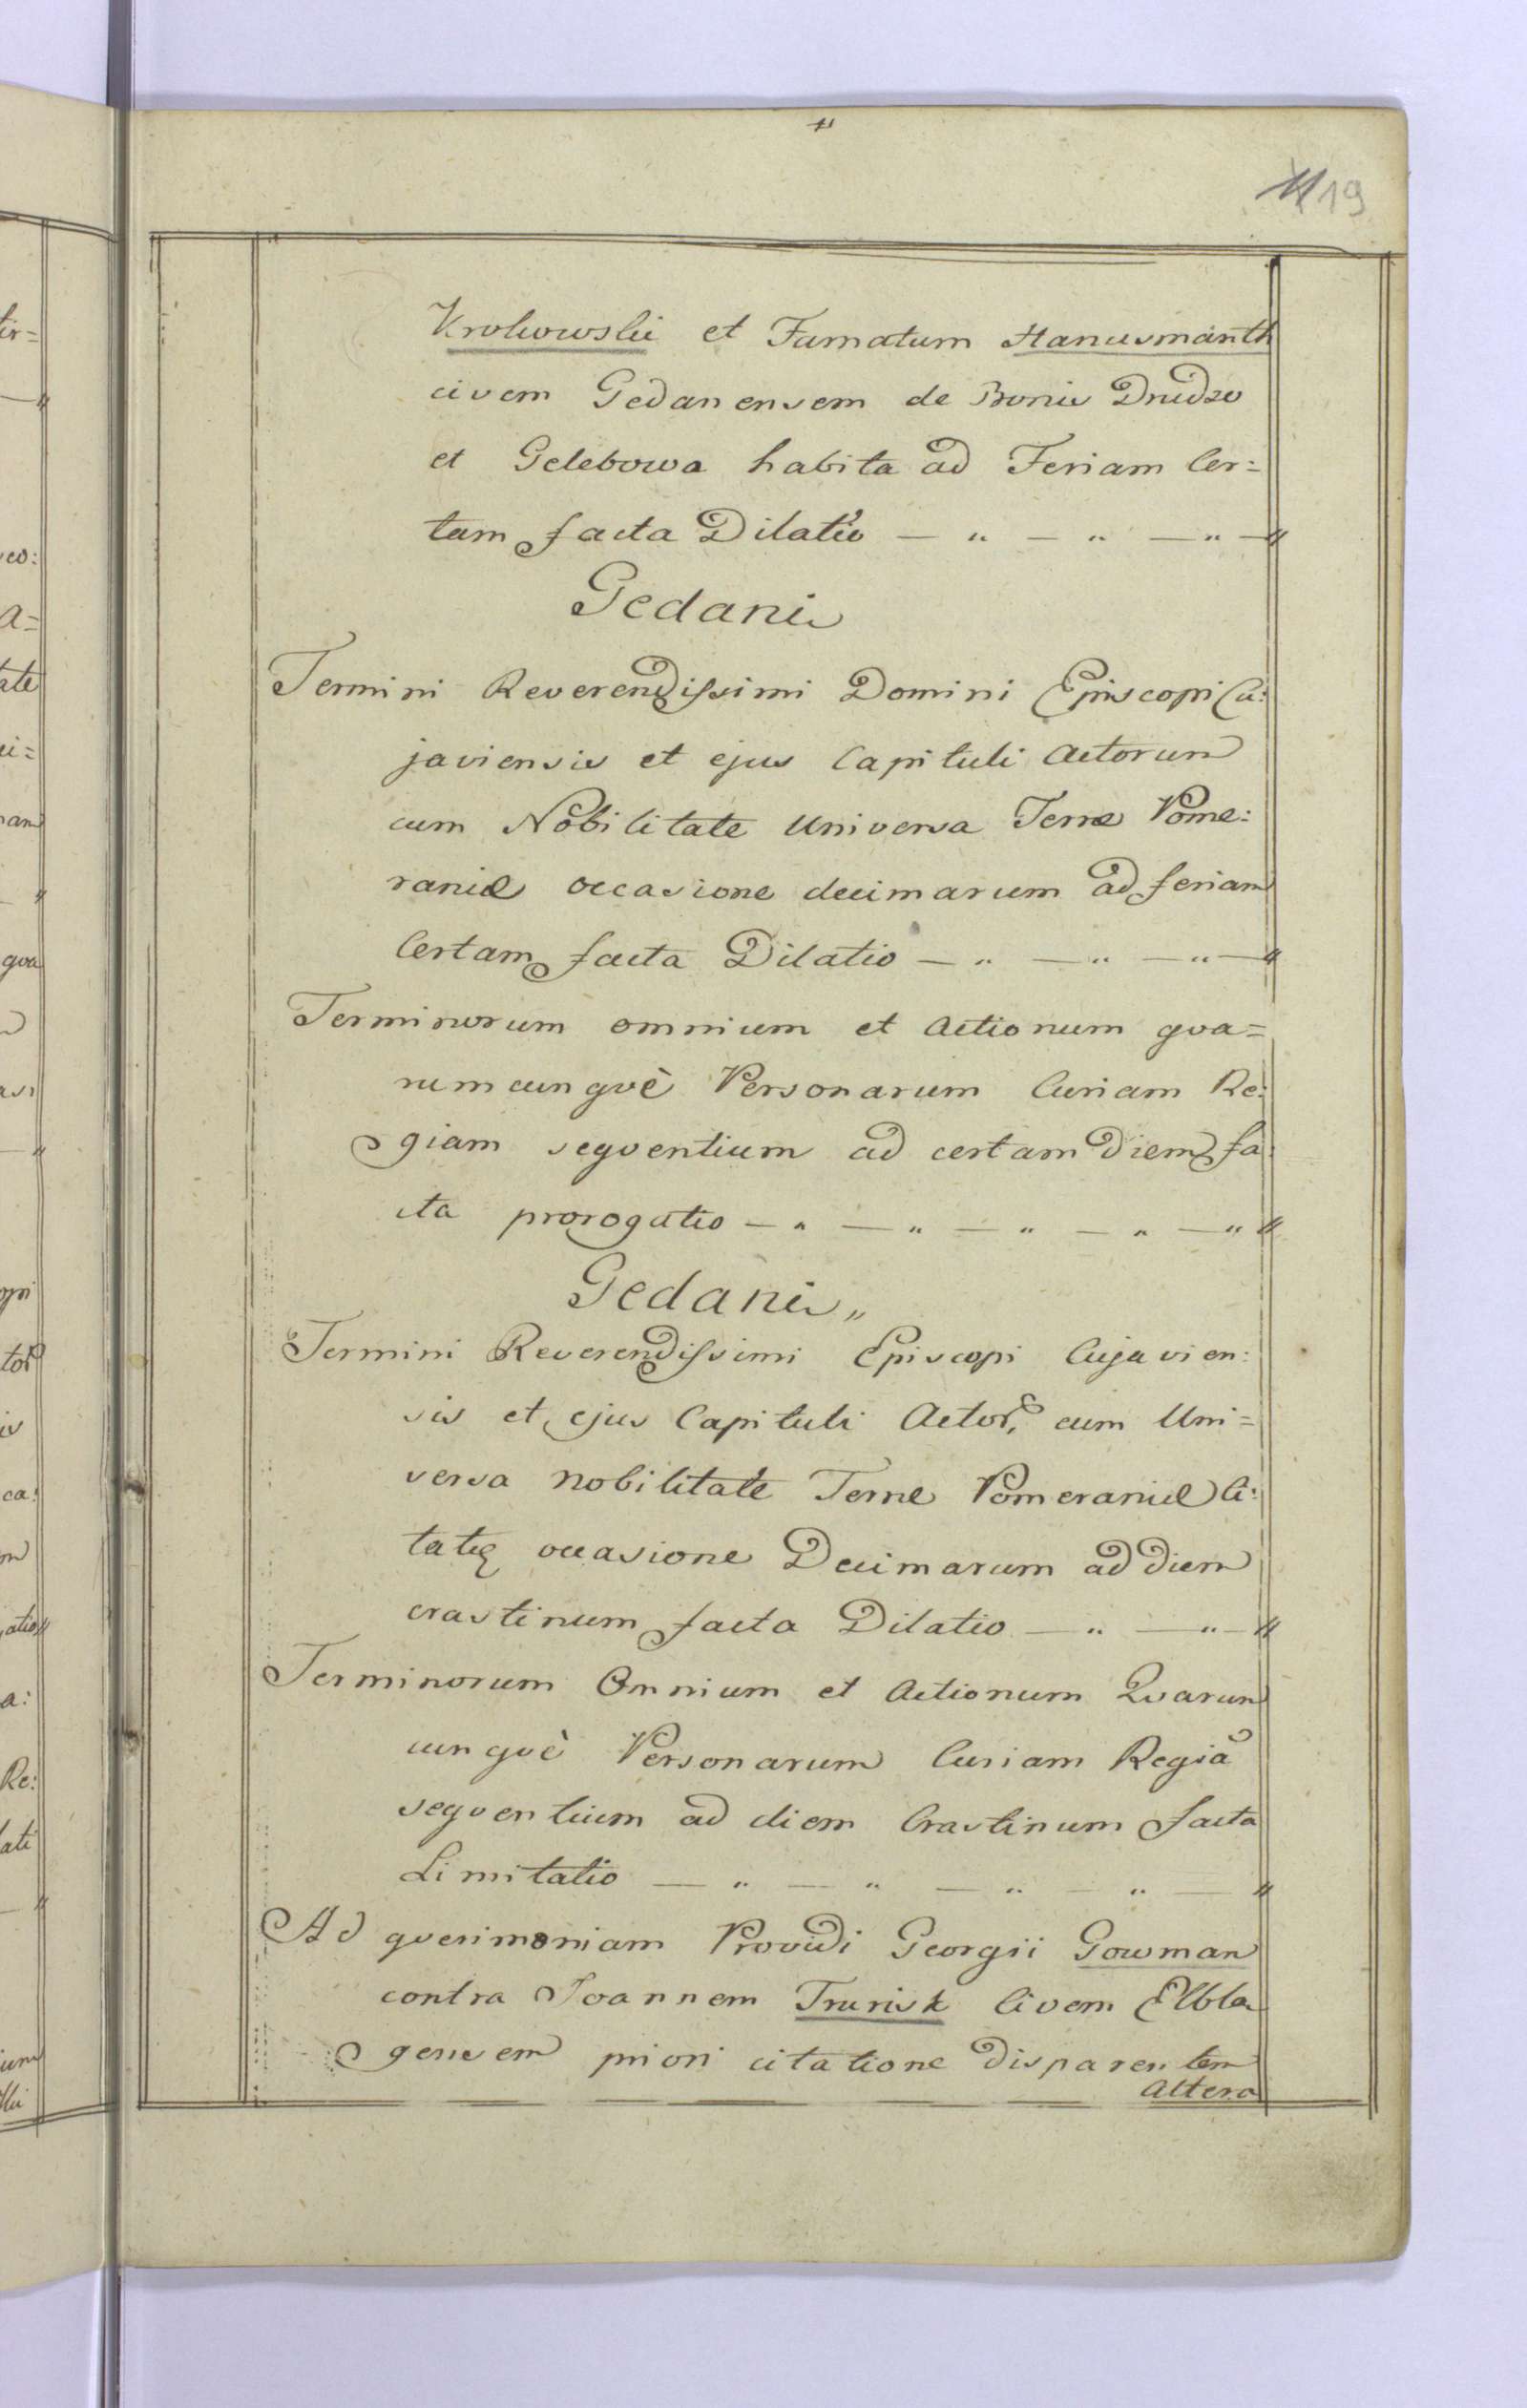 19
Krokowski et Famatum Hanusmanth
civem Gedanensem de Bonis Drudzo
et Gelebowa habita ad Feriam Cer=
tam facta Dilatio — " — " — " —//
Gedani
Termini Reverendissimi Domini Episcopi Cu:
javiensis et ejus Capituli Actorum
cum Nobilitate Universa Terræ Pome:
raniæ occasione decimarum ad feriam
Certam facta Dilatio — " — " — " —//
Terminorum omnium et Actionum qva=
rumcunqvè Personarum Curiam Re:
giam seqventium ad certam diem fa:
cta prorogatio — " — " — " — " — " //
Gedani „
Termini Reverendissimi Episcopi Cujavien:
sis et ejus Capituli Actor, cum Uni=
versa nobilitate Terræ Pomeraniæ Ci:
tatę occasione Decimarum ad diem
crastinum facta Dilatio — " — " —//
Terminorum Omnium et Actionum Qvarum
cunqvè Personarum Curiam Regiã
seqventium ad diem Crastinum facta
Limitatio — " — " — " — " —//
Ad qverimoniam Providi Georgii Gowman
contra Joannem Trurisk Civem Elbla
gensem priori citatione disparentem
Altera